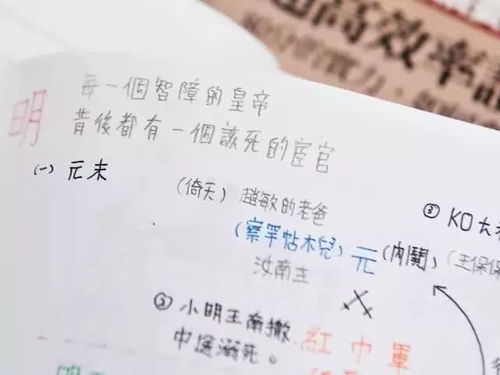 高效率
明
每一個智障的皇帝
背後都有一個該死的宦官
(一) 元末
(倚天) 趙敏的老爸
(察罕帖木兒) 元 (內鬨) (王保保
汝南王
③ KO
③ 小明王南撤
中途溺死。
紅巾軍